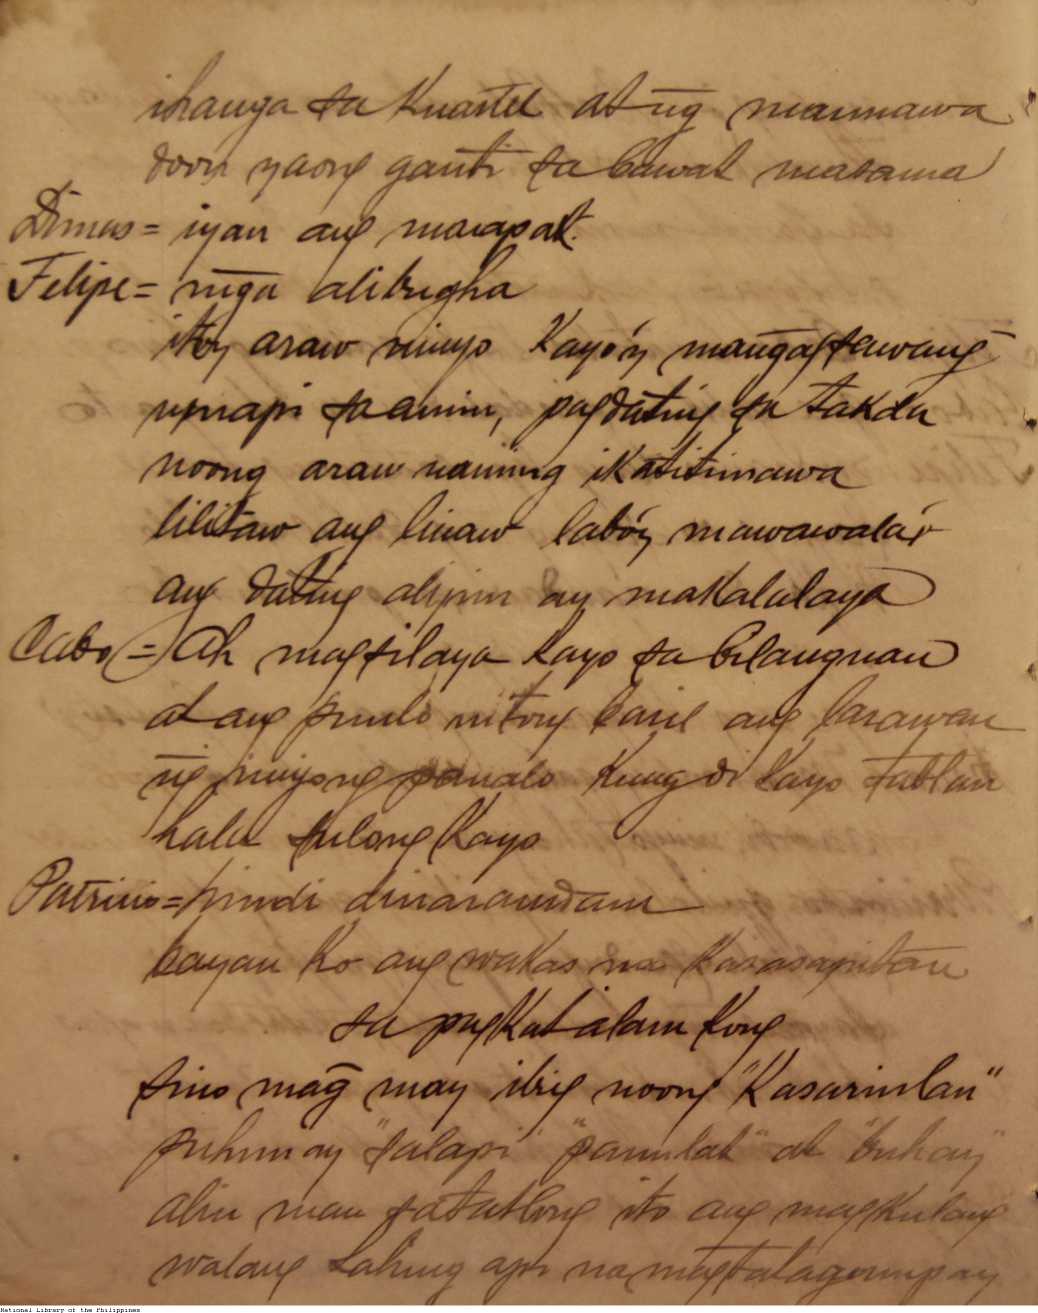 ihanga sa Kuartel at ng̃ mannawa
doon yaong ganti sa bawat masama
Dimas = iyan ang marapat.
Felipe = mg̃a alibugha
itoy araw ninyo Kayo'y
umapi sa amin, pagdating sa takda
noong araw naming ikatitimawa
lilitaw ang linaw labó'y mawawala
ang dating alipin ay makalalaya
Cabo = Ah magsilaya kayo sa bilanguan
at ang punlo nitong baril ang
ng̃ inyong panalo Kung di Kayo tablan
hala sulong Kayo
Patricio = hindi dinaramdam
bayan ko ang wakas na Kasasapitan
sa pagkat alam Kong
sino mag̃ may ibig noong "Kasarinlan"
puhunay "salapi" "panulat" at "buhay"
alin man sa tatlong ito ang magkulang
walang laking api na magtatagumpay
National Library of the Philippines